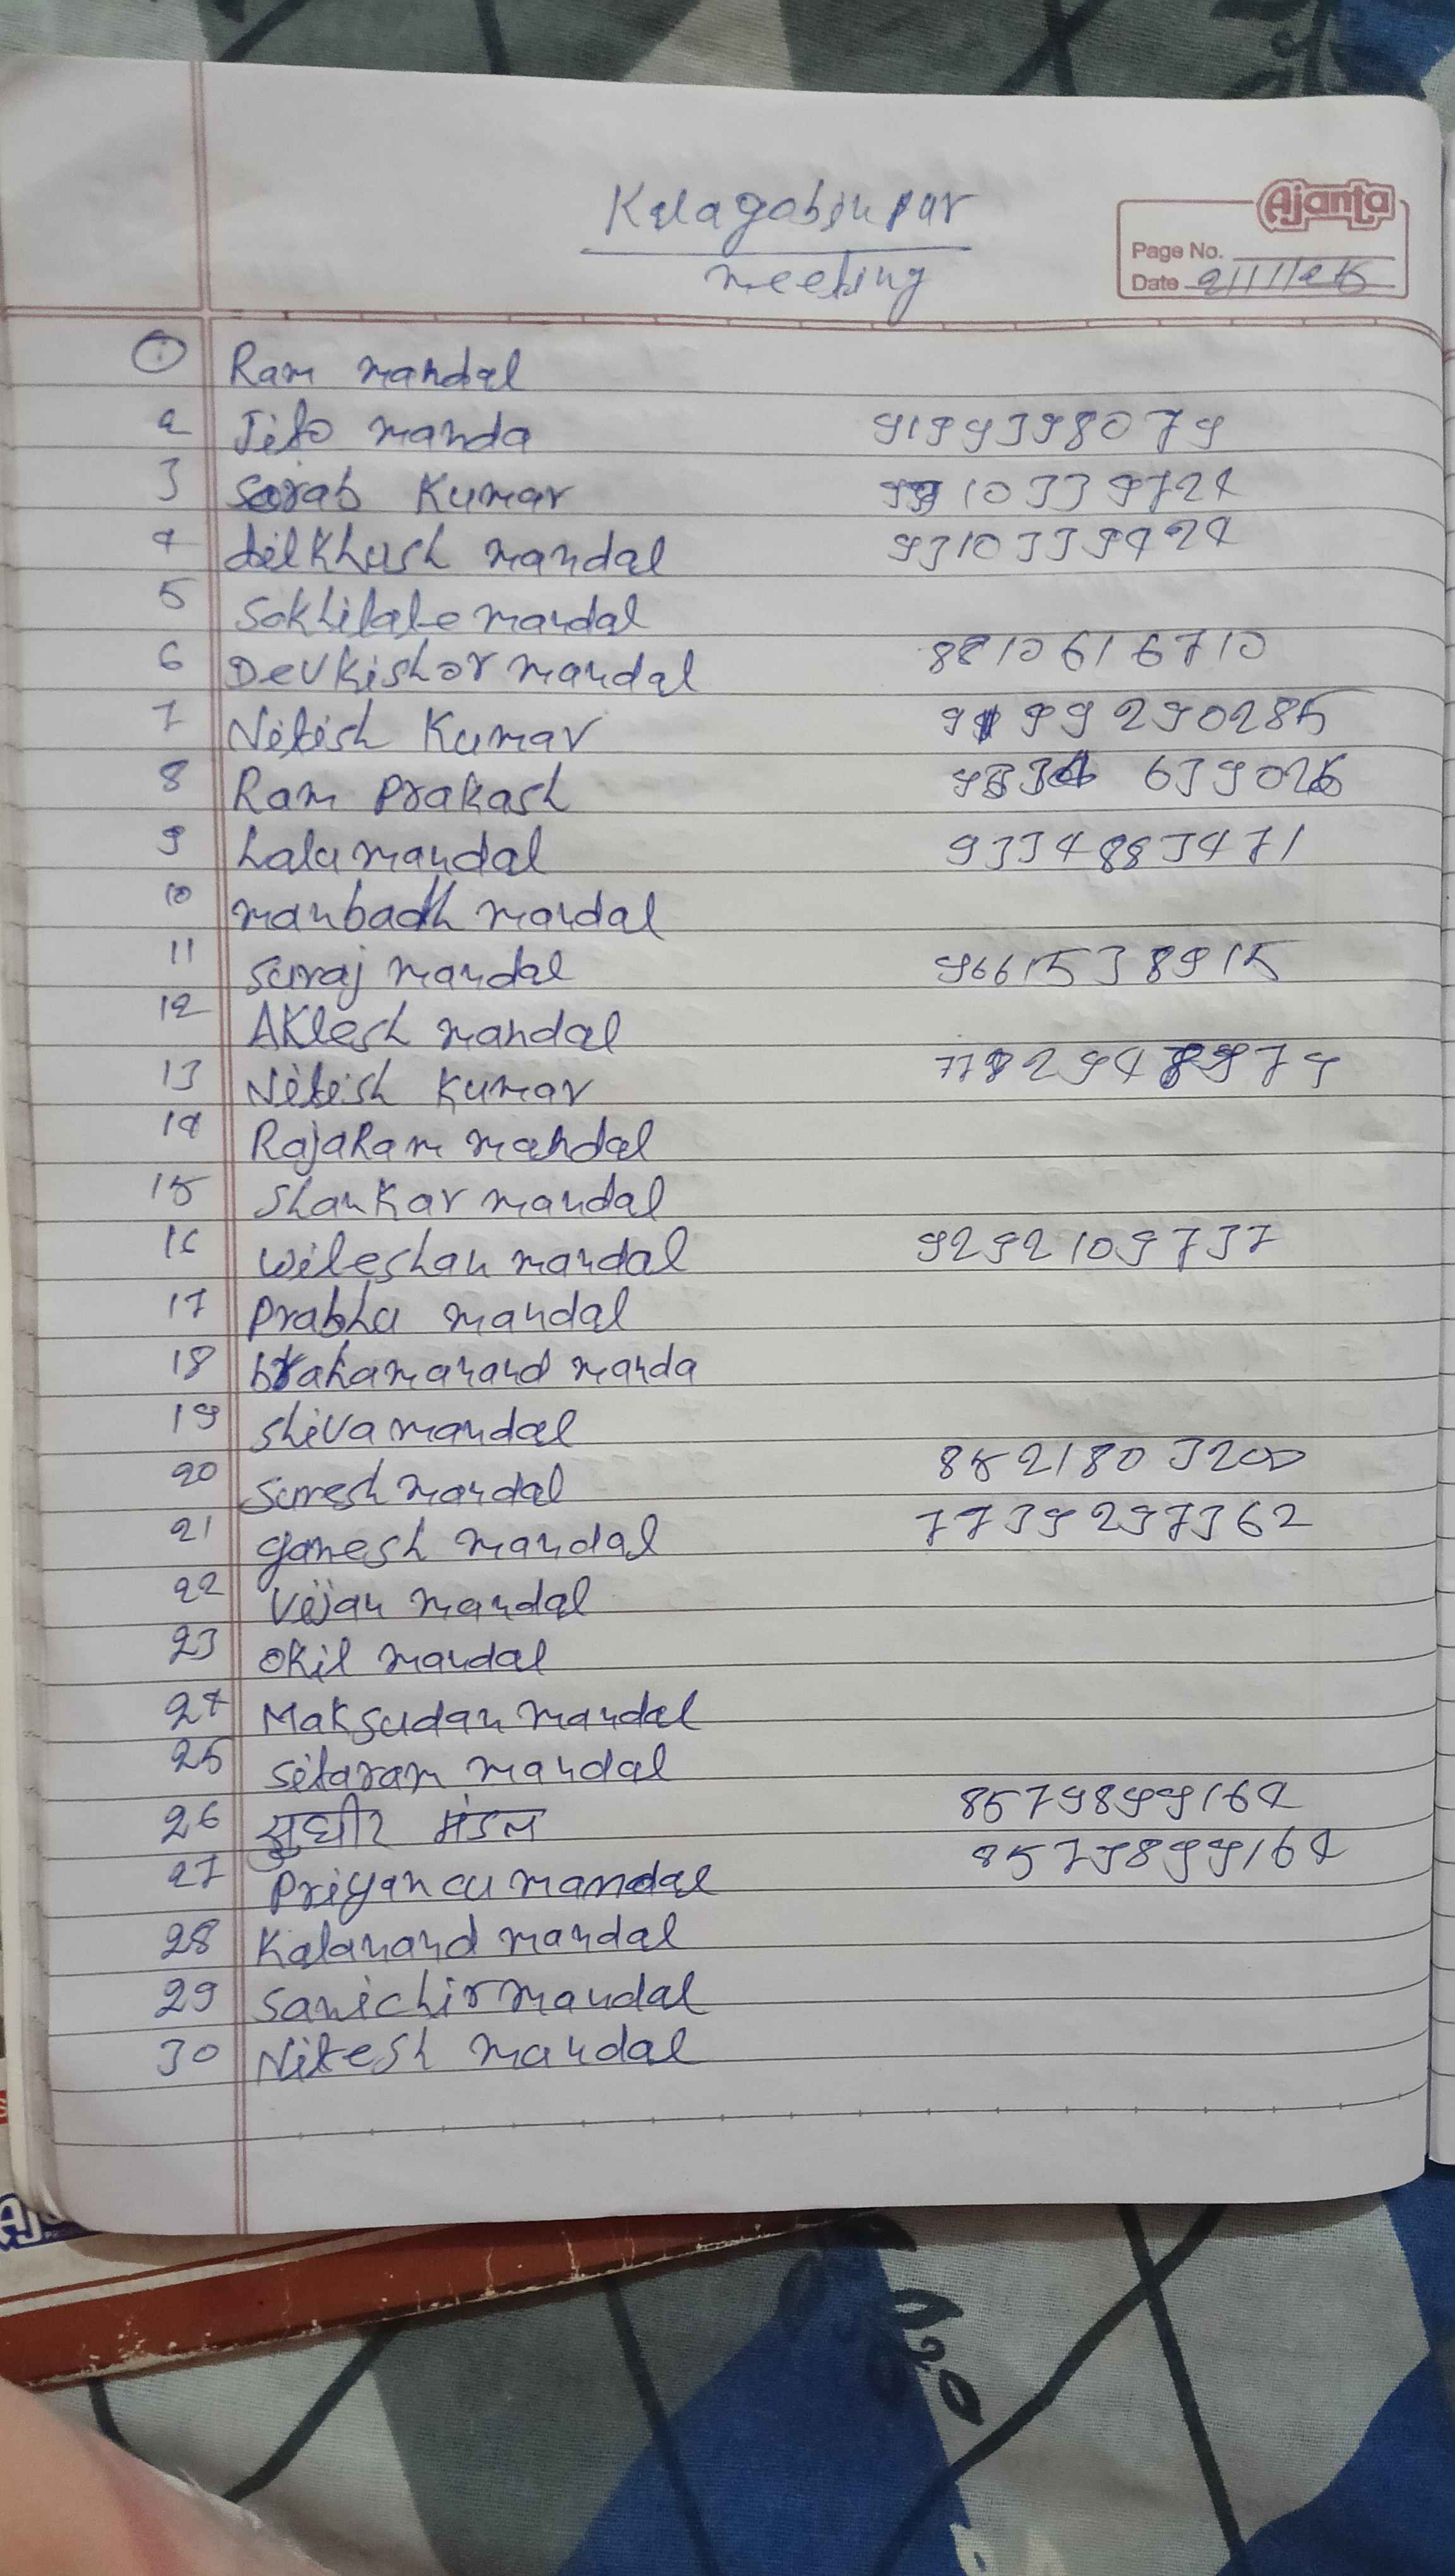 Kalagobinpur
meeting
Ajanta
Page No.
Date 21/1/25
1 Ram mandal
2 Jito manda 9199398079
3 Sorab Kumar
4 dilkhush mandal 9310339424
5 Sokhilale mandal
6 Devkishor mandal 8210616710
7 Nitish Kumar
8 Ram Prakash
9 Lalu mandal 9334883471
10 manbadh mandal
11 Suraj mandal 9661538915
12 Aklesh mandal
13 Nitish Kumar
14 Rajaram mandal
15 Shankar mandal
16 wileshan mandal 9292109737
17 Prabhu mandal
18 brahamanand manda
19 Shiva mandal
20 Suresh mandal 8521803200
21 ganesh mandal 7739297362
22 Vijan mandal
23 Okil mandal
24 Maksudan mandal
25 Sitaram mandal
26 सुधीर मंडल 8579899164
27 Priyancu mandal 8579899164
28 Kalanand mandal
29 Sanichir mandal
30 Nitesh mandal